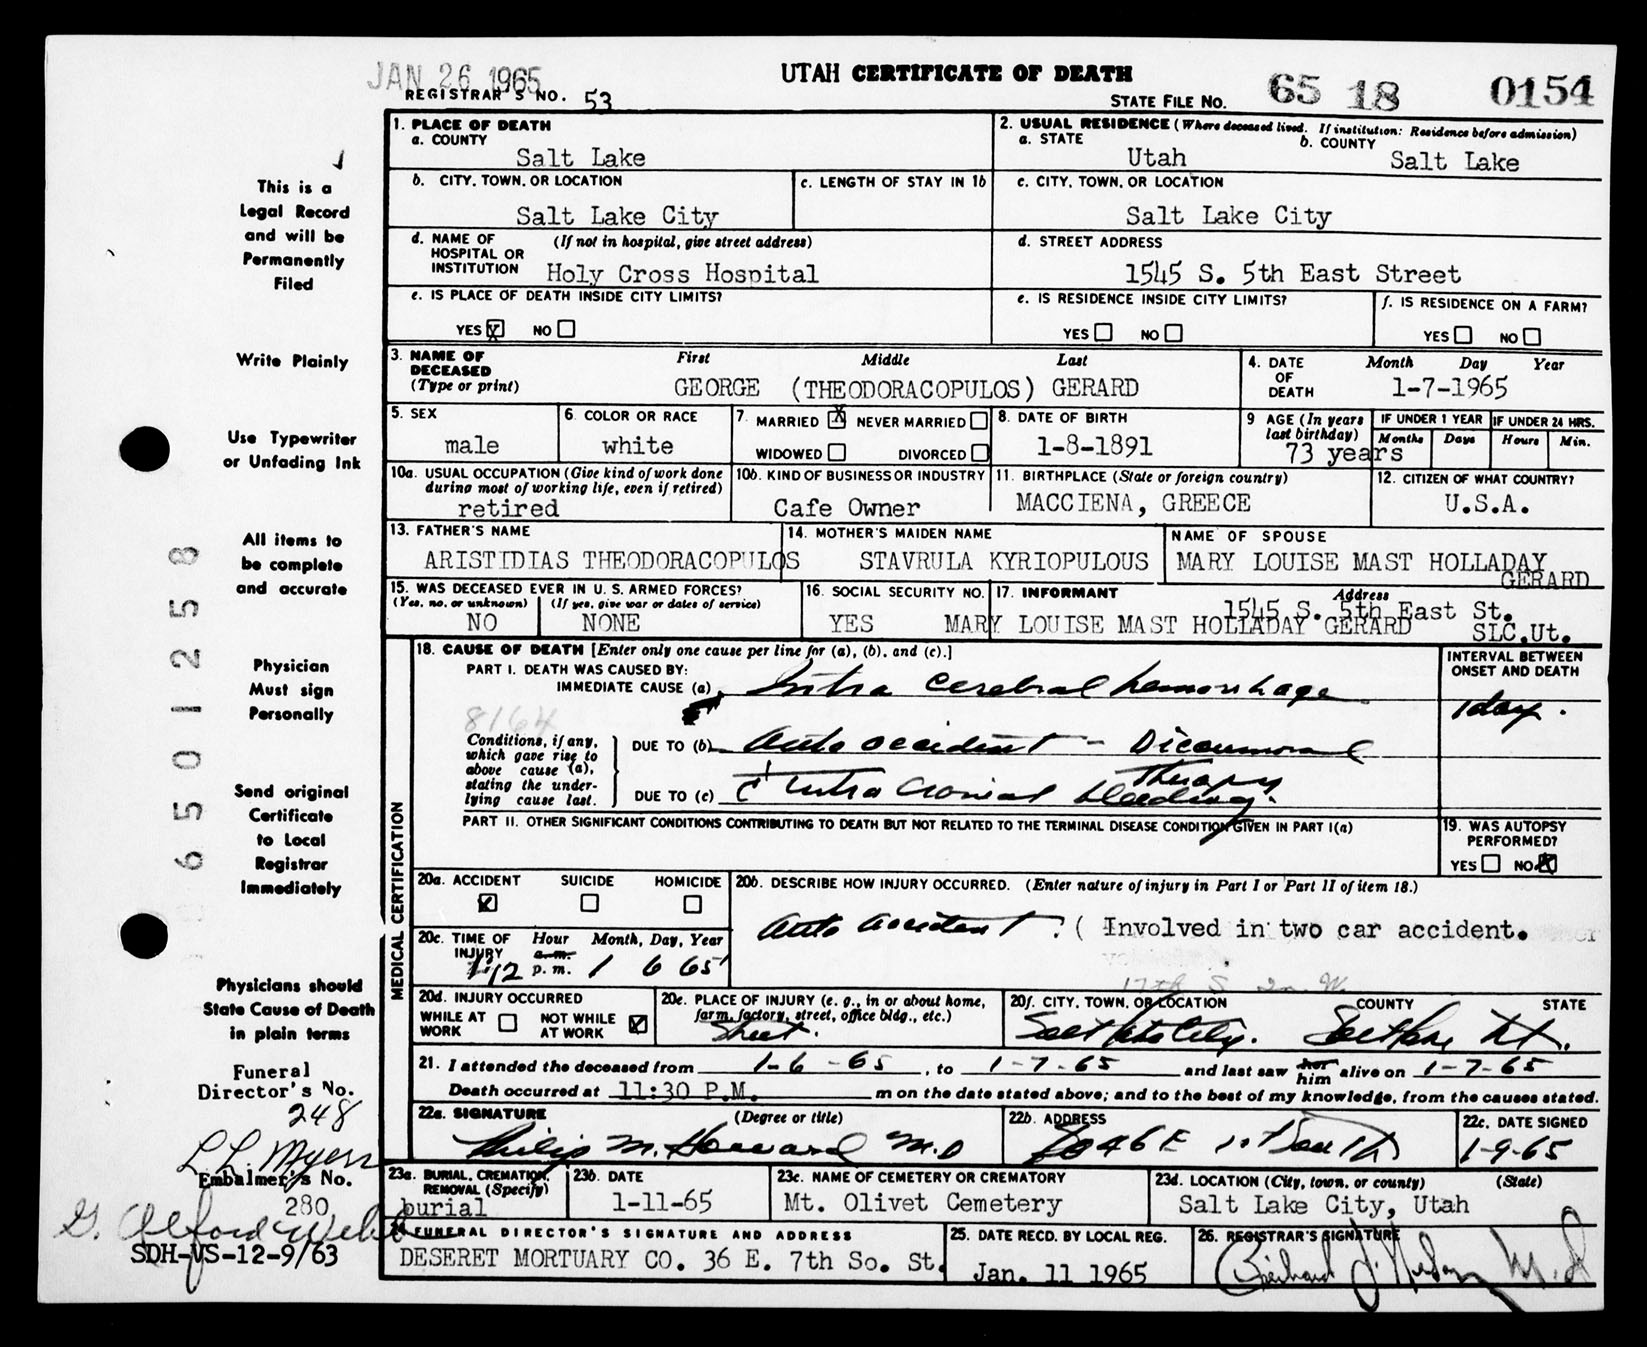 JAN 26 1965
UTAH CERTIFICATE OF DEATH
REGISTRAR'S NO. 53
STATE FILE NO. 65 18 0154
1. PLACE OF DEATH
a. COUNTY
Salt Lake
2. USUAL RESIDENCE (Where deceased lived. If institution: Residence before admission)
a. STATE
Utah
b. COUNTY
Salt Lake
b. CITY, TOWN, OR LOCATION
Salt Lake City
c. LENGTH OF STAY IN 1b
c. CITY, TOWN, OR LOCATION
Salt Lake City
d. NAME OF HOSPITAL OR INSTITUTION (If not in hospital, give street address)
Holy Cross Hospital
d. STREET ADDRESS
1545 S. 5th East Street
e. IS PLACE OF DEATH INSIDE CITY LIMITS?
YES X NO
e. IS RESIDENCE INSIDE CITY LIMITS?
YES NO
f. IS RESIDENCE ON A FARM?
YES NO
3. NAME OF DECEASED (Type or print)
First Middle Last
GEORGE (THEODORACOPULOS) GERARD
4. DATE OF DEATH
Month Day Year
1-7-1965
5. SEX
male
6. COLOR OR RACE
white
7. MARRIED X NEVER MARRIED
WIDOWED DIVORCED
8. DATE OF BIRTH
1-8-1891
9 AGE (In years last birthday)
73 years
IF UNDER 1 YEAR
Months Days
IF UNDER 24 HRS.
Hours Min.
10a. USUAL OCCUPATION (Give kind of work done during most of working life, even if retired)
retired
10b. KIND OF BUSINESS OR INDUSTRY
Cafe Owner
11. BIRTHPLACE (State or foreign country)
MACCIENA, GREECE
12. CITIZEN OF WHAT COUNTRY?
U.S.A.
13. FATHER'S NAME
ARISTIDIAS THEODORACOPULOS
14. MOTHER'S MAIDEN NAME
STAVRULA KYRIOPULOUS
NAME OF SPOUSE
MARY LOUISE MAST HOLLADAY
GERARD
15. WAS DECEASED EVER IN U. S. ARMED FORCES?
(Yes, no, or unknown) (If yes, give war or dates of service)
NO NONE
16. SOCIAL SECURITY NO.
YES
17. INFORMANT Address
1545 S. 5th East St.
MARY LOUISE MAST HOLLADAY GERARD SLC,Ut.
18. CAUSE OF DEATH [Enter only one cause per line for (a), (b), and (c).]
PART I. DEATH WAS CAUSED BY:
IMMEDIATE CAUSE (a) Intra cerebral hemorrhage
INTERVAL BETWEEN ONSET AND DEATH
1 day.
8164
Conditions, if any, which gave rise to above cause (a), stating the underlying cause last.
DUE TO (b) Auto accident - Dicoumoral
Therapy
DUE TO (c) c̄ Intra Cranial bleeding.
PART II. OTHER SIGNIFICANT CONDITIONS CONTRIBUTING TO DEATH BUT NOT RELATED TO THE TERMINAL DISEASE CONDITION GIVEN IN PART I(a)
19. WAS AUTOPSY PERFORMED?
YES NO X
MEDICAL CERTIFICATION
20a. ACCIDENT SUICIDE HOMICIDE
20b. DESCRIBE HOW INJURY OCCURRED. (Enter nature of injury in Part I or Part II of item 18.)
Auto accident ( Involved in two car accident.
20c. TIME OF INJURY
Hour Month, Day, Year
a.m.
p.m. 1 6 65
17th S 2n W.
20d. INJURY OCCURRED
WHILE AT WORK NOT WHILE AT WORK
20e. PLACE OF INJURY (e. g., in or about home, farm, factory, street, office bldg., etc.)
Street.
20f. CITY, TOWN, OR LOCATION COUNTY STATE
Salt Lake City. Salt Lake Ut.
21. I attended the deceased from 1-6-65, to 1-7-65 and last saw her him alive on 1-7-65
Death occurred at 11:30 P.M. m on the date stated above; and to the best of my knowledge, from the causes stated.
22a. SIGNATURE (Degree or title)
Philip M. Howard M.D
22b. ADDRESS
22c. DATE SIGNED
1-9-65
23a. BURIAL, CREMATION, REMOVAL (Specify)
burial
23b. DATE
1-11-65
23c. NAME OF CEMETERY OR CREMATORY
Mt. Olivet Cemetery
23d. LOCATION (City, town, or county) (State)
Salt Lake City, Utah
24 FUNERAL DIRECTOR'S SIGNATURE AND ADDRESS
DESERET MORTUARY CO. 36 E. 7th So. St.
25. DATE RECD. BY LOCAL REG.
Jan. 11 1965
26. REGISTRAR'S SIGNATURE
This is a
Legal Record
and will be
Permanently
Filed
Write Plainly
Use Typewriter
or Unfading Ink
All items to
be complete
and accurate
Physician
Must sign
Personally
Send original
Certificate
to Local
Registrar
Immediately
Physicians should
State Cause of Death
in plain terms
Funeral
Director's No.
248
L L. Myers
Embalmer's No.
280
G. Alford Webb
SDH-VS-12-9/63
65012558